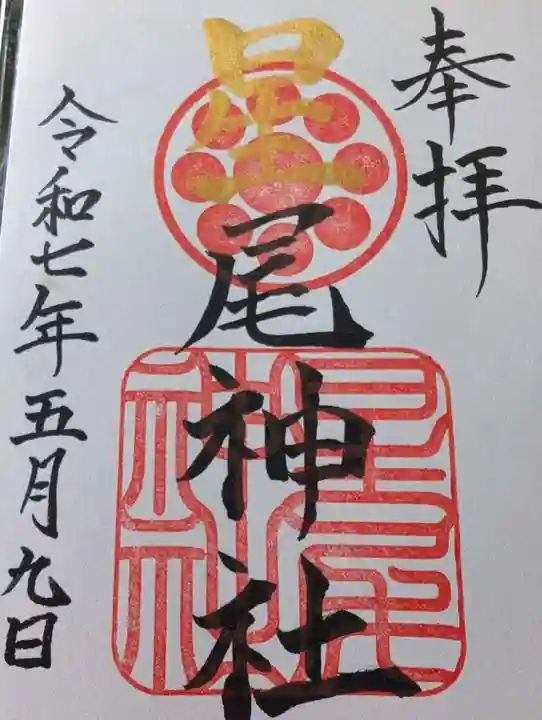 奉拝
星尾神社
令和七年五月九日